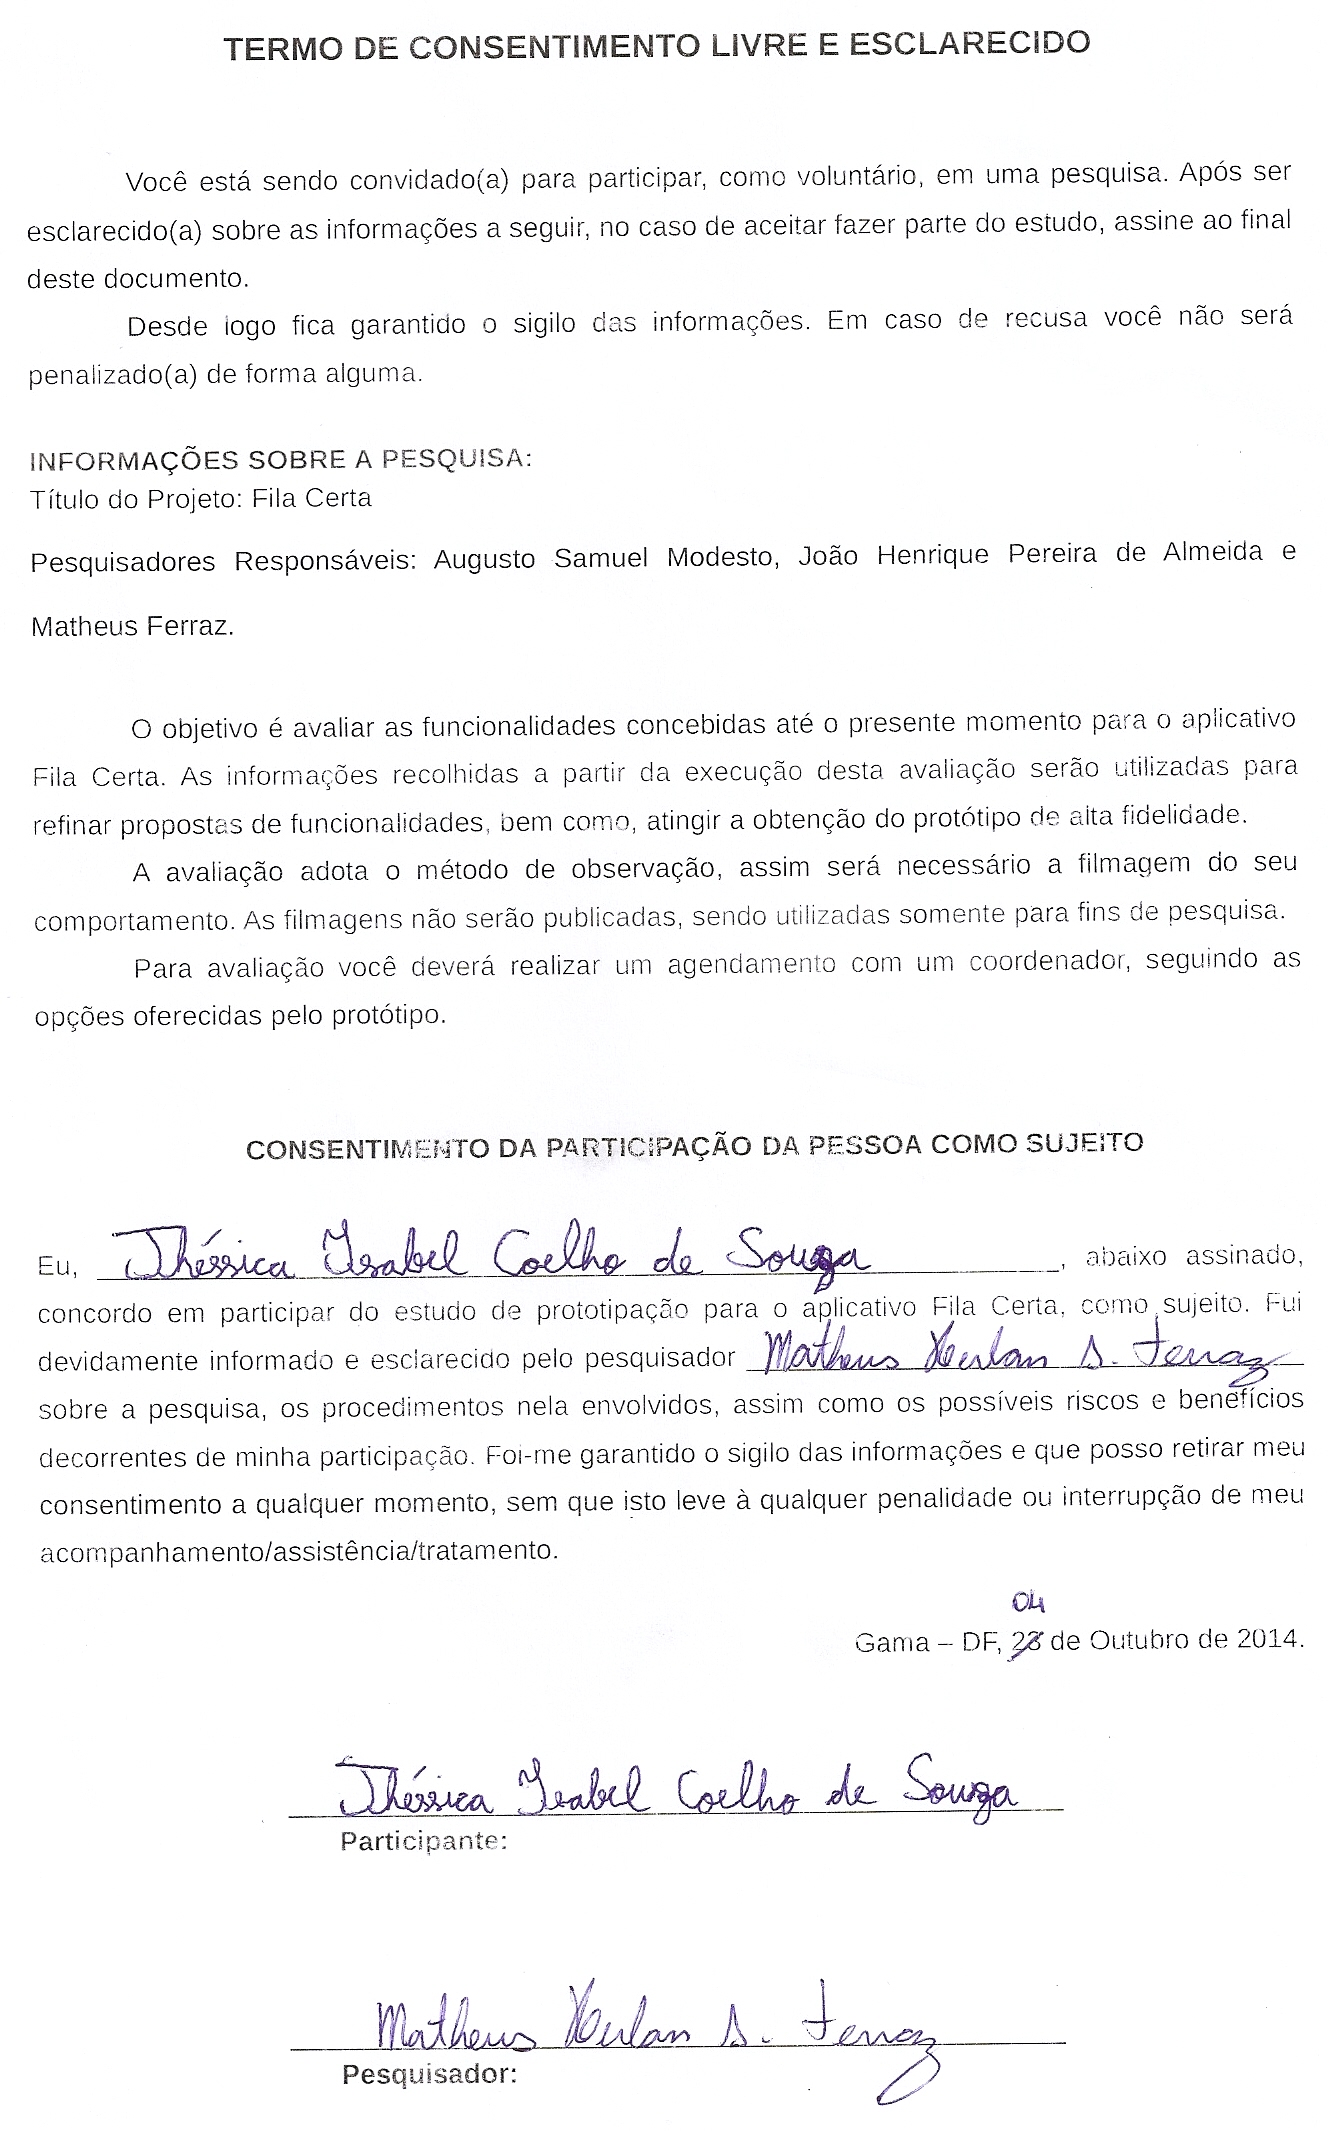 TERMO DE CONSENTIMENTO LIVRE E ESCLARECIDO
Você está sendo convidado(a) para participar, como voluntário, em uma pesquisa. Após ser
esclarecido(a) sobre as informações a seguir, no caso de aceitar fazer parte do estudo, assine ao final
deste documento.
Desde logo fica garantido o sigilo das informações. Em caso de recusa você não será
penalizado(a) de forma alguma.
INFORMAÇÕES SOBRE A PESQUISA:
Título do Projeto: Fila Certa
Pesquisadores Responsáveis: Augusto Samuel Modesto, João Henrique Pereira de Almeida e
Matheus Ferraz.
O objetivo é avaliar as funcionalidades concebidas até o presente momento para o aplicativo
Fila Certa. As informações recolhidas a partir da execução desta avaliação serão utilizadas para
refinar propostas de funcionalidades, bem como, atingir a obtenção do protótipo de alta fidelidade.
A avaliação adota o método de observação, assim será necessário a filmagem do seu
comportamento. As filmagens não serão publicadas, sendo utilizadas somente para fins de pesquisa.
Para avaliação você deverá realizar um agendamento com um coordenador, seguindo as
opções oferecidas pelo protótipo.
CONSENTIMENTO DA PARTICIPAÇÃO DA PESSOA COMO SUJEITO
Eu, Jhéssica Ysabel Coelho de Souza, abaixo assinado,
concordo em participar do estudo de prototipação para o aplicativo Fila Certa, como sujeito. Fui
devidamente informado e esclarecido pelo pesquisador Matheus Herlan S. Ferraz
sobre a pesquisa, os procedimentos nela envolvidos, assim como os possíveis riscos e benefícios
decorrentes de minha participação. Foi-me garantido o sigilo das informações e que posso retirar meu
consentimento a qualquer momento, sem que isto leve à qualquer penalidade ou interrupção de meu
acompanhamento/assistência/tratamento.
04
Gama – DF, 28 de Outubro de 2014.
Jhéssica Ysabel Coelho de Souza
Participante:
Matheus Herlan S. Ferraz
Pesquisador: